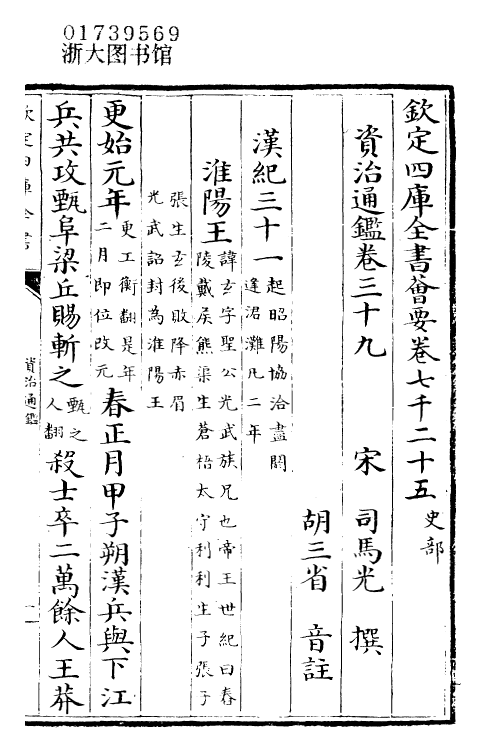 01739569
浙大图书馆
欽定四庫全書薈要卷七千二十五 史部
資治通鑑卷三十九 宋 司馬光 撰
胡三省 音註
漢紀三十一 起昭陽協洽盡閼
逢涒灘凡二年
淮陽王 諱玄字聖公光武族兄也帝王世紀曰春
陵戴侯熊渠生蒼梧太守利利生子張子
張生玄後敗降赤眉
光武詔封為淮陽王
更始元年 更工衡翻是年
二月即位改元
春正月甲子朔漢兵與下江
兵共攻甄阜梁丘賜斬之 甄之
人翻
殺士卒二萬餘人王莽
欽定四庫全書
資治通鑑
一